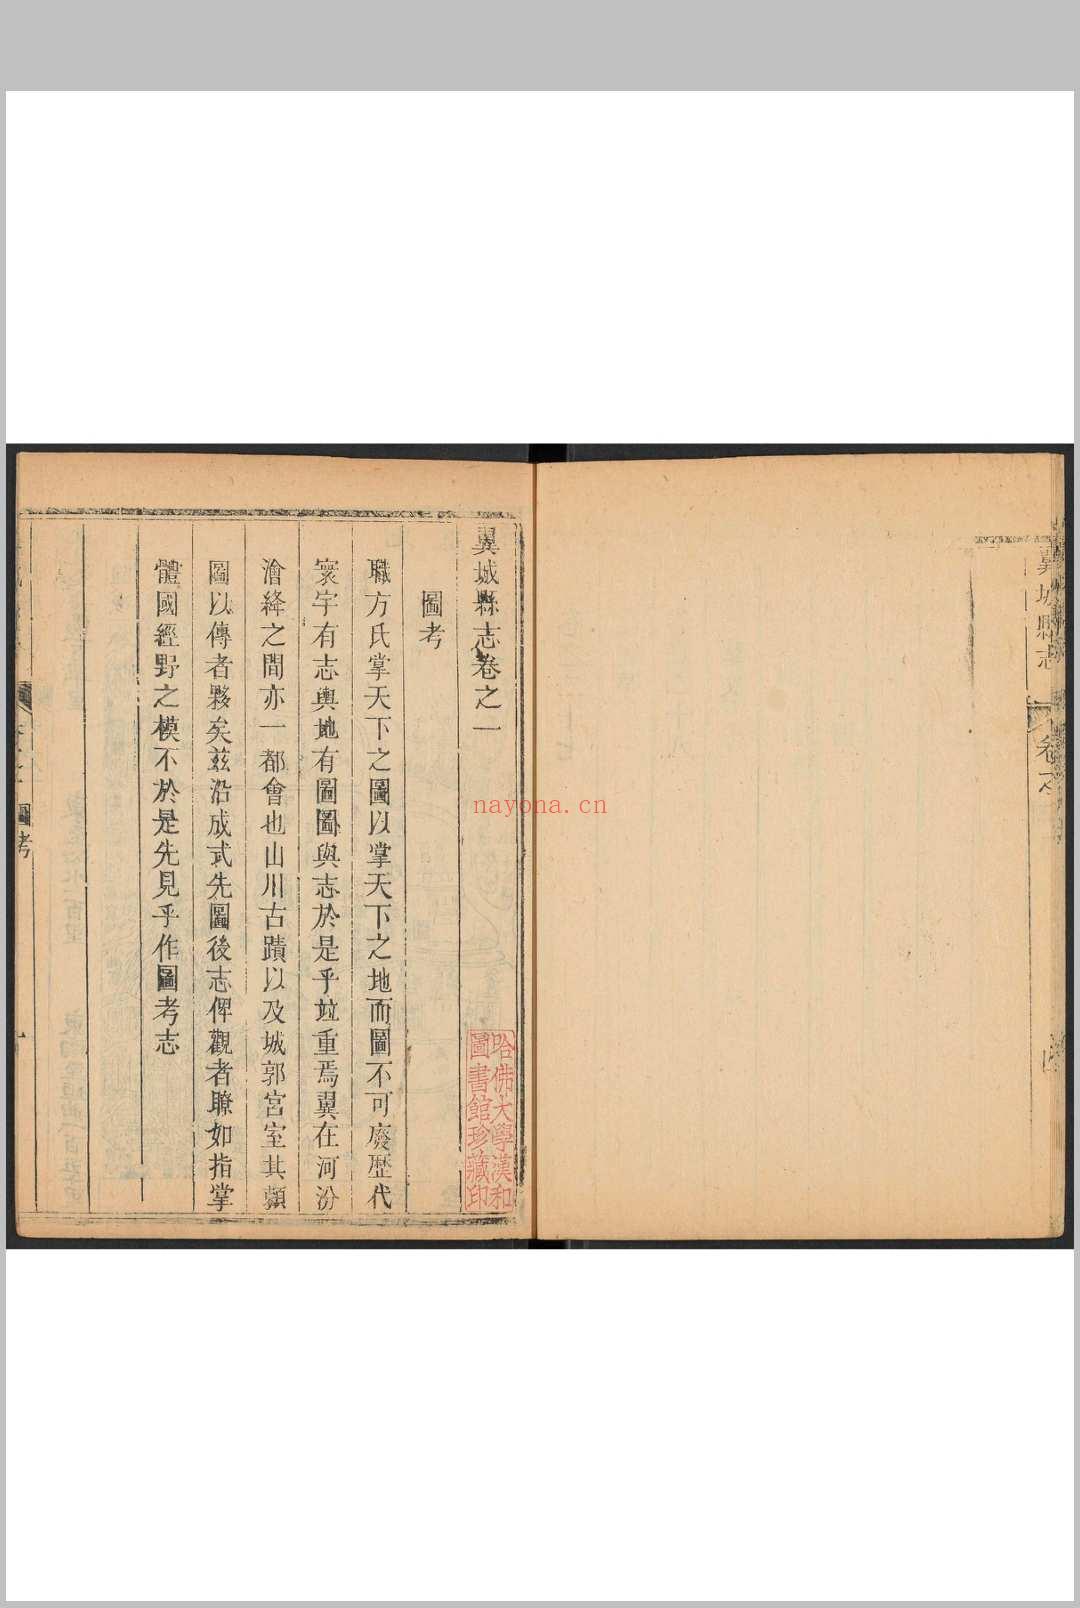 翼城縣志
卷之
翼城縣志卷之一
圖考
職方氏掌天下之圖以掌天下之地而圖不可廢歷代
寰宇有志輿地有圖圖與志於是乎竝重焉翼在河汾
澮絳之間亦一都會也山川古蹟以及城郭宮室其顏
圖以傳者夥矣茲沿成式先圖後志俾觀者瞭如指掌
體國經野之模不於是先見乎作圖考志
圖考
哈佛大學漢和
圖書館珍藏印
nayona.cn